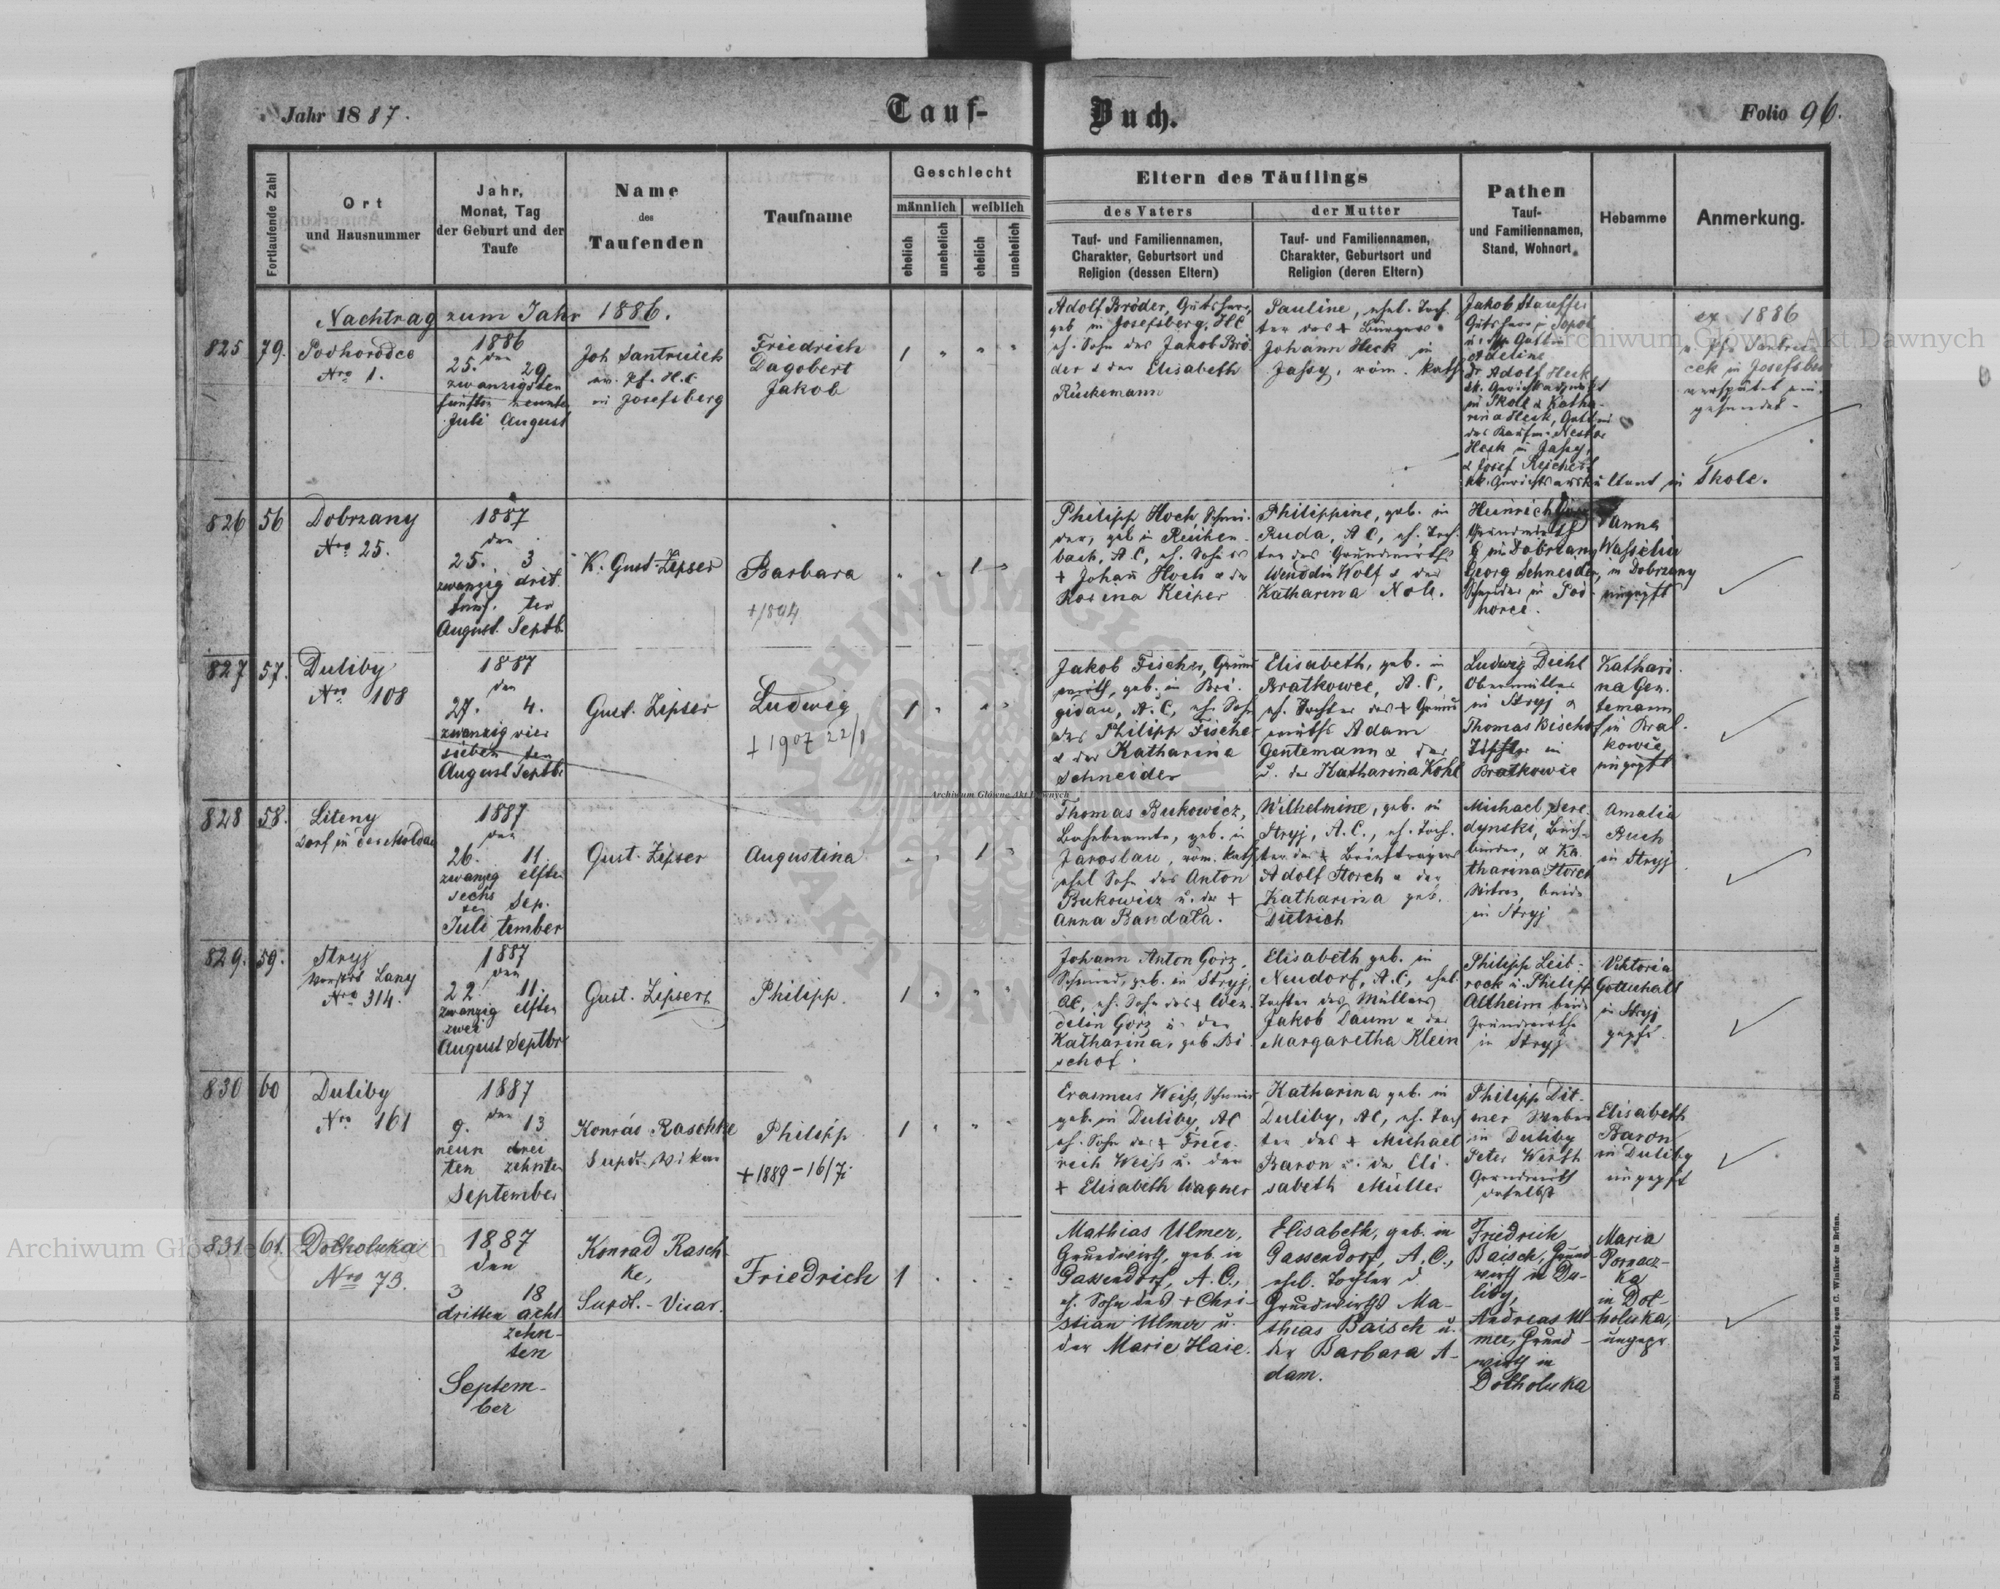 Jahr 1887.
Tauf-
Buch.
Folio 96.
Fortlaufende Zahl
Ort
und Hausnummer
Jahr,
Monat, Tag
der Geburt und der
Taufe
Name
des
Taufenden
Taufname
Geschlecht
männlich
weiblich
ehelich
unehelich
ehelich
unehelich
Eltern des Täuflings
des Vaters
Tauf- und Familiennamen,
Charakter, Geburtsort und
Religion (dessen Eltern)
der Mutter
Tauf- und Familiennamen,
Charakter, Geburtsort und
Religion (deren Eltern)
Pathen
Tauf-
und Familiennamen,
Stand, Wohnort.
Hebamme
Anmerkung.
Nachtrag zum Jahr 1886.
825
79.
Podhorodce
Nro 1.
1886
den
25. 29
zwanzigsten
fünften neunten
Juli August
Joh Santruček
ev. Pf. H.C.
in Josefsberg
Friedrich
Dagobert
Jakob
1
Adolf Bröder, Gutsherr,
geb in Josefsberg, H.C.
eh. Sohn des Jakob Brö
der & der Elisabeth
Rückemann
Pauline, ehel. Toch.
ter des + Bürgers
Johann Heck in
Jassy, röm. kath
Jakob Stauffer
Adeline
Dr Adolf Heck
in Skole & Katha-
rina Heck, Gattin
Heck in Jassy,
& Josef Reichert
ex 1886
cek in Josefsber
verspätet ein.
gesendet -
in Skole.
826
56
Dobrzany
Nro 25.
1887
den
25. 3
zwanzig drit
fünf. ten
August. Septb.
K. Gust. Zipser
Barbara
+1894
1
Philipp Hoch, Schnei-
der, geb in Reichen-
bach, A.C, eh. Sohn des
+ Johann Hoch & der
Rosina Keiper
Philippine, geb. in
Ruda, A C, eh. Toch.
ter des Grundwirths
Wendelin Wolf & der
Katharina Nolt.
Heinrich
Grundwirth
in Dobrzany
Georg Schneider,
Schneider in Pod-
horce.
Hanna
Wasselin
in Dobrzany
ungeprft
827
57.
Duliby
Nro 108
1887
den
27. 4.
zwanzig vier
sieben ten
August Septb.
Gust. Zipser
Ludwig
+ 1907 22/1
1
Jakob Fischer, Grund
wirth, geb. in Bri-
gidau, A.C, eh. Sohn
des Philipp Fischer
& der Katharina
Schneider
Elisabeth, geb. in
Bratkowce, A.C,
eh. Tochter des + Grund
wirths Adam
Gentemann & der
u. der Katharina Kohl
Ludwig Diehl
Obermüller
in Stryj &
Thomas Bischof
Töpfer in
Bratkowce
Kathari
na Gen.
temann
in Brat.
kowce,
ungeprft
828
58.
Liteny
Dorf in der Moldau
1887
den
26. 11.
zwanzig elften
sechs
ten Sep.
Juli tember
Gust. Zipser
Augustina
1
Thomas Bukowicz,
Bahnbeamte, geb. in
Jaroslau, röm. kath
ehel Sohn des Anton
Bukowicz u. der +
Anna Bandala.
Wilhelmine, geb. in
Stryj, A.C., eh. Toch.
ter des + Briefträgers
Adolf Storch & der
Katharina geb.
Dietrich
Michael Sere-
dynski, Buch-
binder, & Ka
tharina Storch
Witwe, beide
in Stryj
Amalia
Buch
in Stryj
829.
59.
Stryj
Vorstdt Lany
Nro 314.
1887
den
22. 11.
zwanzig elften
zwei
August Septbr
Gust. Zipser
Philipp.
1
Johann Anton Gorz,
Schmied, geb. in Stryj,
AC, eh. Sohn des + Wen
delin Gorz u. der
Katharina, geb Bi
schof.
Elisabeth geb. in
Neudorf, A.C, ehel.
Tochter des Müllers
Jakob Daum & der
Margaretha Klein
Philipp Leib-
rock u. Philipp
Altheim beide
Grundwirthe
in Stryj
Viktoria
Gottschall
in Stryj
geprft.
830
60
Duliby
Nro 161
1887
den
9. 13
neun drei
ten zehnten
September
Konrád Raschke
Supdt. Vikar
Philipp
+ 1889 - 16/7.
1
Erasmus Weiss, Schmied
geb. in Duliby, AC
eh. Sohn des + Fried.
reich Weiss u. der
+ Elisabeth Wagner
Katharina geb. in
Duliby, AC, eh. Toch
ter des + Michael
Baron u. der Eli-
sabeth Müller
Philipp Dit-
mer Weber
in Duliby
Peter Wirth
Grundwirth
daselbst
Elisabeth
Baron
in Duliby
ungeprft
831
61.
Dolholuka
Nro 73.
1887
den
3 18
dritten acht
zehn-
ten
Septem-
ber
Konrad Rasch-
ke,
Supdt. - Vicar.
Friedrich
1
Mathias Ulmer,
Grundwirth, geb. in
Gassendorf, A.C.,
eh. Sohn des + Chri-
stian Ulmer u.
der Marie Haie.
Elisabeth, geb. in
Gassendorf, A.C.,
ehel. Tochter d.
Grundwirths Ma-
thias Baisch u.
der Barbara A-
dam.
Friedrich
Baisch, Grund-
wirth in Du-
liby,
Andreas Ul
mer, Grund-
wirth in
Dolholuka
Maria
Pornacz-
ka
in Dol-
holuka,
ungepr.
Druck und Verlag von C. Winiker in Brünn.
Archiwum Główne Akt Dawnych
Archiwum Główne Akt Dawnych
Archiwum Główne Akt Dawnych
ARCHIWUM GŁÓWNE
AKT DAWNYCH